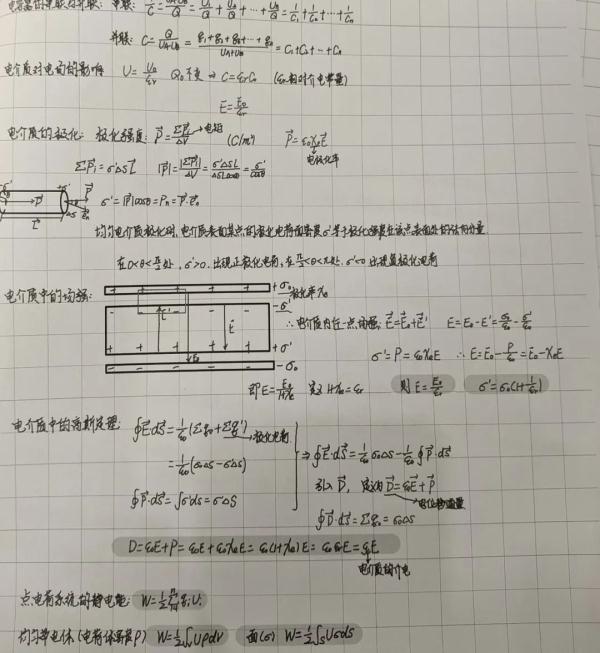 电容器的串联与并联: 串联: 1/C = (U_A-U_B)/Q = U_1/Q + U_2/Q + ⋯ + U_n/Q = 1/C_1 + 1/C_2 + ⋯ + 1/C_n
并联: C = Q/(U_A-U_B) = (q_1+q_2+q_3+⋯+q_n)/(U_A-U_B) = C_1+C_2+⋯+C_n
电介质对电场的影响 U = U_0/ε_r Q_0不变 ⇒ C=ε_rC_0 (ε_r相对介电常量)
E = E_0/ε_r
电介质的极化: 极化强度: P⃗ = ΣP⃗_i/ΔV → 电矩 (C/m²) P⃗=ε_0χ_eE⃗
电极化率
ΣP⃗_i = σ'ΔSL⃗ |P⃗| = |ΣP⃗_i|/ΔV = σ'ΔSL/(ΔSLcosθ) = σ'/cosθ
σ'=|P⃗|cosθ=P_n=P⃗·e⃗_n
均匀电介质极化时, 电介质表面某点的极化电荷面密度σ'等于极化强度在该点表面处的法向分量
在0<θ<π/2处, σ'>0, 出现正极化电荷, 在π/2<θ<π处, σ'<0 出现负极化电荷
电介质中的场强: +σ_0 极化率χ_e
-σ'
∴电介质内任一点场强: E⃗=E⃗_0+E⃗' E=E_0-E'=σ_0/ε_0-σ'/ε_0
+σ' σ'=P=ε_0χ_eE ∴E=E_0-P/ε_0=E_0-χ_eE
E_0 -σ_0
即E=E_0/(1+χ_e) 定义1+χ_e=ε_r 则E=E_0/ε_r σ'=σ_0(1-1/ε_r)
电介质中的高斯定理: ∮E⃗·dS⃗=1/ε_0(Σq_0+Σq') → 极化电荷
=1/ε_0(σ_0ΔS-σ'ΔS) ⇒ ∮E⃗·dS⃗=1/ε_0 σ_0ΔS-1/ε_0∮P⃗·dS⃗
∮P⃗·dS⃗=∫σ'dS=σ'ΔS 引入D⃗, 定义为D⃗=ε_0E⃗+P⃗
电位移矢量
∮D⃗·dS⃗=Σq_0=σ_0ΔS
D=ε_0E+P=ε_0E+ε_0χ_eE=ε_0(1+χ_e)E=ε_0ε_rE=εE
电介质的介电
点电荷系统的静电能: W=1/2 Σ q_iU_i
均匀带电体(电荷体密度ρ) W=1/2∫_V UρdV 面(σ) W=1/2∫_S UσdS